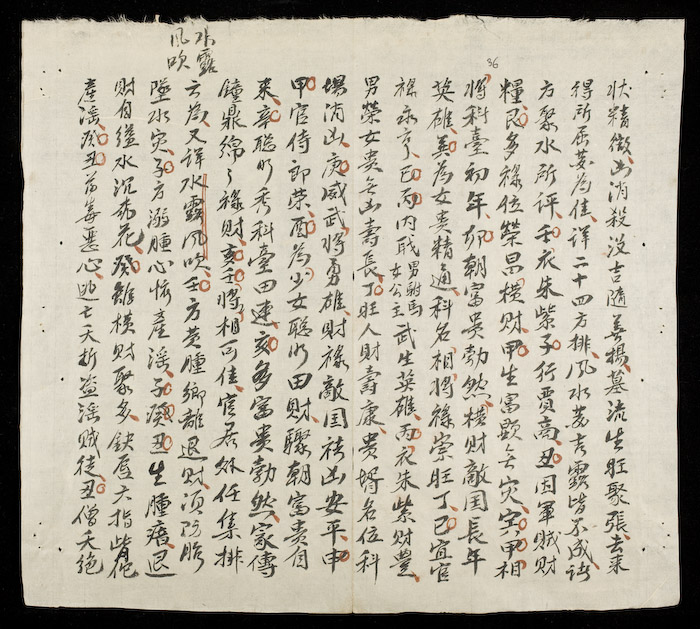 86
狀精微凶消殺沒吉隨善揚墓流生旺聚張去來
得所居葬為佳詳二十四方排風水葬吉露皆不成話
方聚水所評壬衣朱紫子行賈高丑因軍賊財
糧艮多祿位榮昌橫財甲生富顯無灾甲相
將科臺初年卯朝富貴勃然橫財敵国長年
英雄巽為女貴精通科名相將祿崇旺丁巳宜官
祿永亨巳丙內職男駙馬女公主武生英雄丙衣朱紫財豐
男榮女貴無凶壽長丁旺人財壽康貴壻名位科
場消凶庚威武將勇雄財祿敵国禍凶安平申
甲官侍郎榮酉為少女聰明田財驟朝富貴自
來辛聰明秀科臺田連亥多富貴勃然家傳
鐘鼎綿々祿財亥壬將相可佳官居任集排
云為又詳水露風吹壬方黃腫鄉離退財須防
墜水灾子方溺腫心懷產淫子癸丑生腫瘡退
財自縊水沉花癸雖橫財聚多缺唇大指皆
產淫癸丑毒惡心七夭折盜淫賊徒丑僧夭絕
水露
風吹